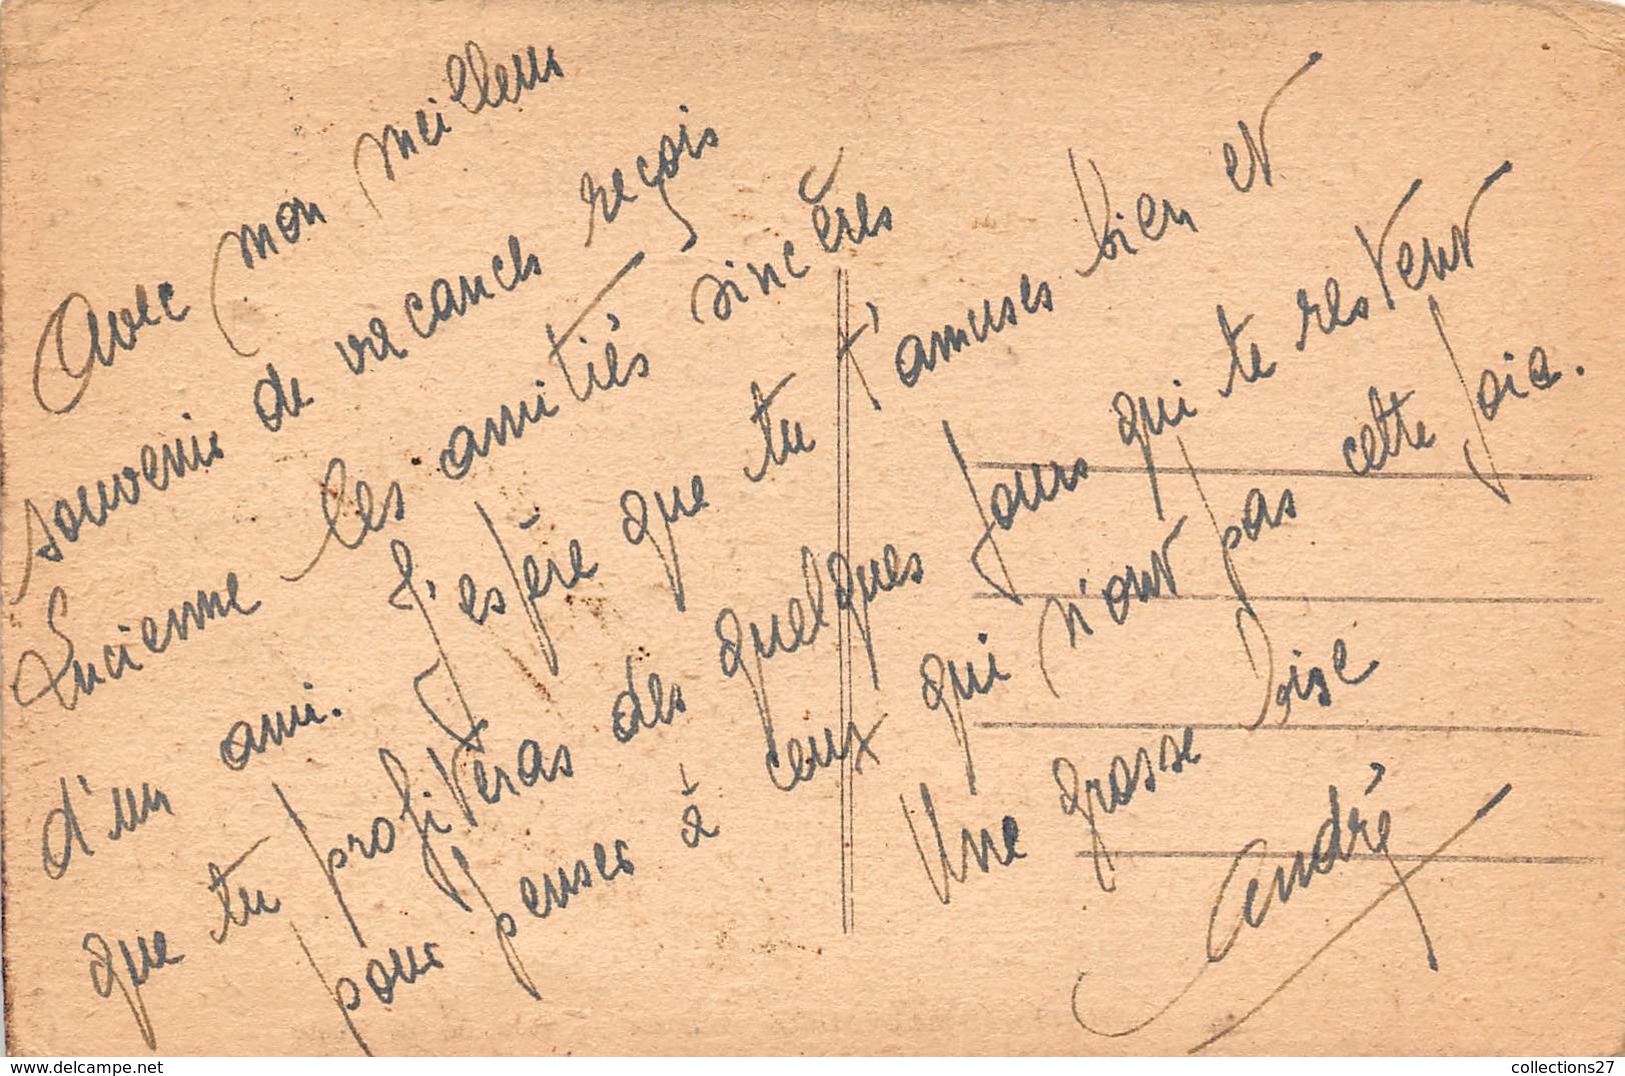 Avec mon meilleur
souvenir de vacances reçois
Lucienne les amitiés sincères
d'un ami. J'espère que tu t'amuses bien et
que tu profiteras des quelques jours qui te restent
pour penser à ceux qui n'ont pas cette joie.
Une grosse bise
André
www.delcampe.net
collections27